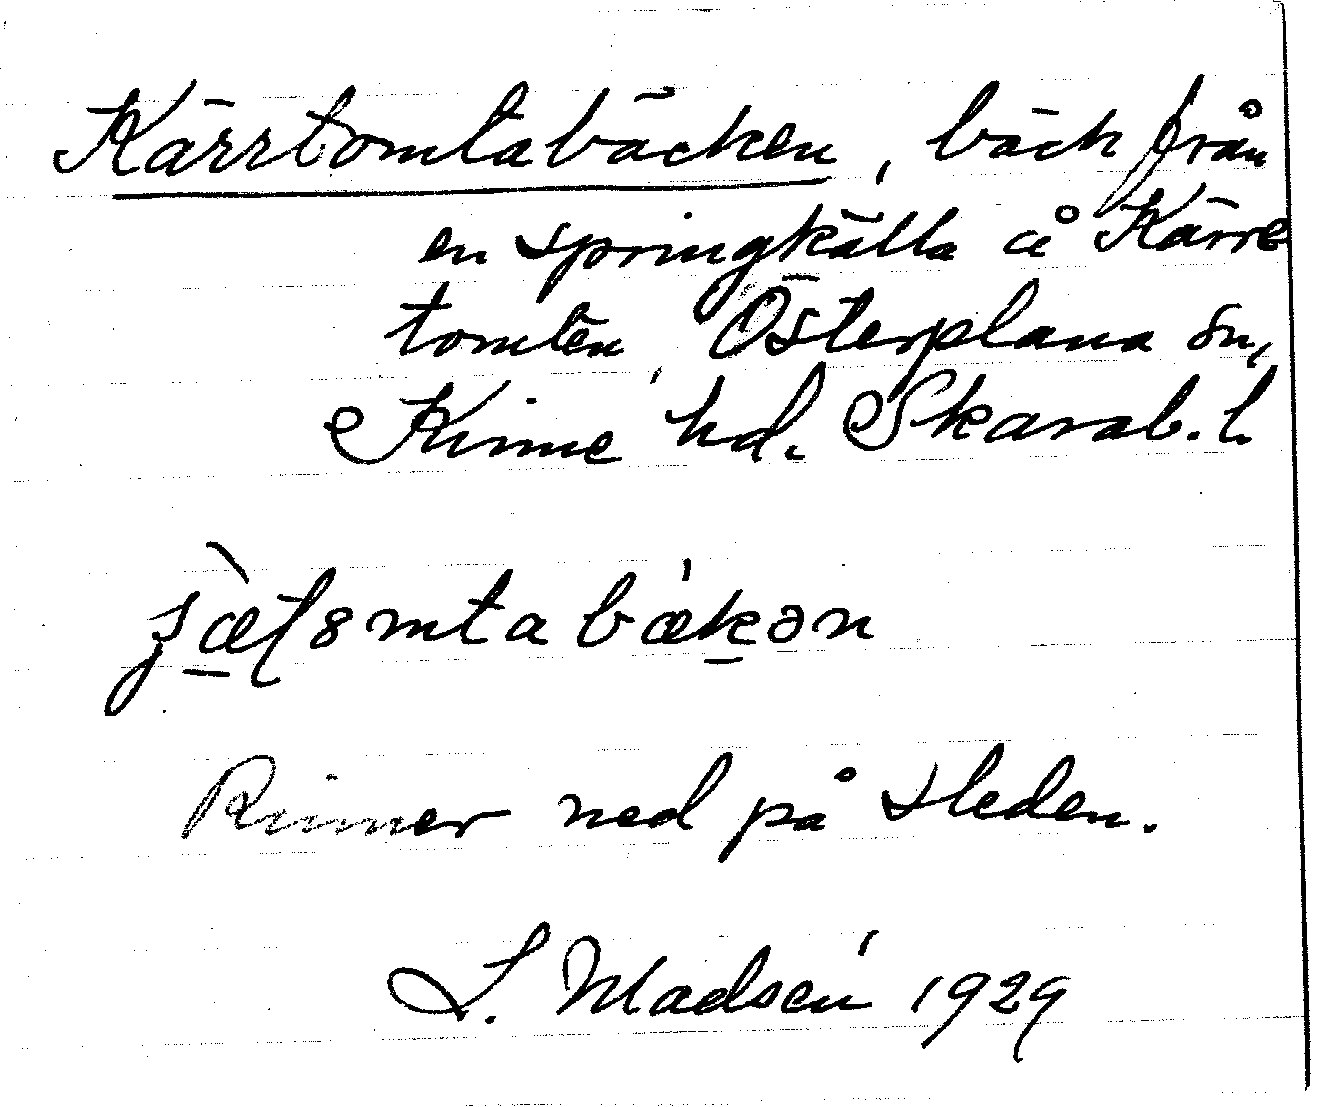 Kärrtomtabäcken, bäck från
en springkälla å Kärr
tomten, Österplana sn,
Kinne hd. Skarab. l.
Rinner ned på sleden.
L. Madsén 1929